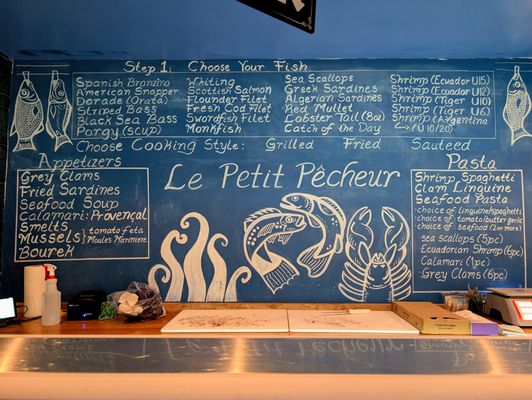 Step 1: Choose Your Fish
Spanish Bronzino
American Snapper
Dorada (Orata)
Striped Bass
Black Sea Bass
Porgy (scup)
Whiting
Scottish Salmon
Flounder Filet
Fresh Cod Filet
Swordfish Filet
Monkfish
Sea Scallops
Greek Sardines
Algerian Sardines
Red Mullet
Lobster Tail (8oz)
Catch of the Day
Shrimp (Ecuador U15)
Shrimp (Ecuador U12)
Shrimp (Tiger U10)
Shrimp (Tiger U6)
Shrimp (Argentina
U10/20)
Choose Cooking Style: Grilled Fried Sauteed
Appetizers
Grey Clams
Fried Sardines
Seafood Soup
Calamari: Provençal
Smelts
Mussels} tomato feta
Moules Mariniere
Bourek
Le Petit Pêcheur
Pasta
Shrimp Spaghetti
Clam Linguine
Seafood Pasta
choice of linguine/spaghetti
choice of tomato/butter garlic
choice of seafood (2 or more)
sea scallops (5pc)
Ecuadorian Shrimp (6pc)
Calamari (1pc)
Grey Clams (6pc)